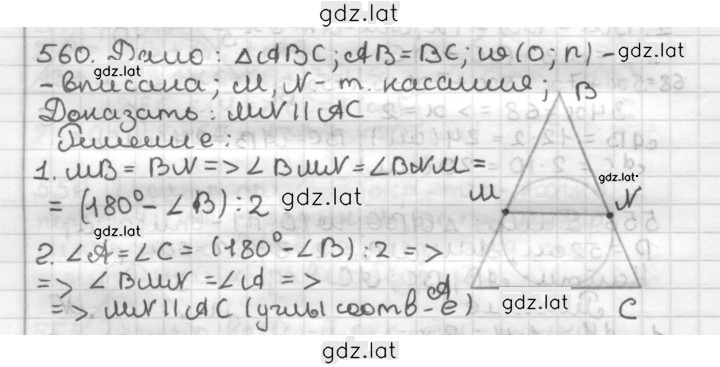 gdz.lat
560. Дано: △ABC; AB=BC; ω(O; r) - gdz.lat
- вписана; M, N - т. касания;
gdz.lat
Доказать: MN || AC
Решение:
1. MB = BN => ∠BMN = ∠BNM =
= (180° - ∠B) : 2 gdz.lat
gdz.lat
2. ∠A = ∠C = (180° - ∠B) : 2 =>
=> ∠BMN = ∠A =>
=> MN || AC (углы соотв-е)
B
gdz.lat
M
N
A
C
gdz.lat
gdz.lat